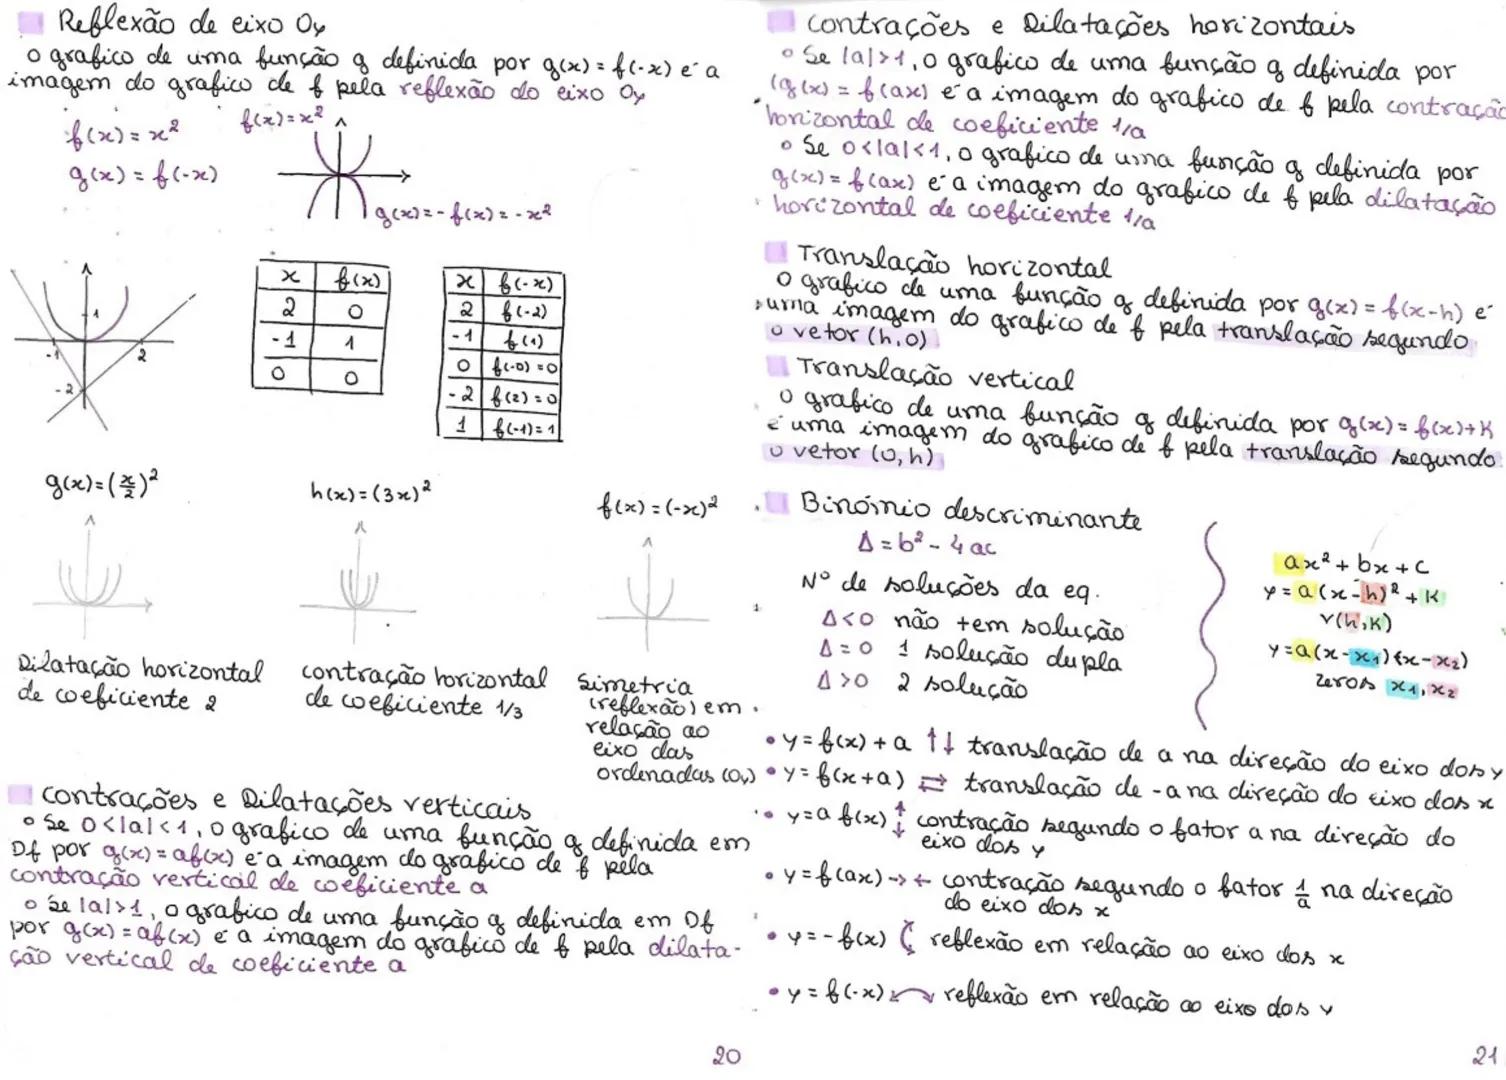 Reflexão de eixo Oy
o grafico de uma função g definida por g(x) = f(-x) é a
imagem do grafico de f pela reflexão do eixo Oy
f(x) = x²
f(x) = x²
g(x) = f(-x)
g(x) = - f(x) = - x²
1
-1
2
-2
x f(x)
2 0
-1 1
0 0
x f(-x)
2 f(-2)
-1 f(1)
0 f(-0) = 0
-2 f(2) = 0
1 f(-1) = 1
g(x) = (x/2)²
h(x) = (3x)²
f(x) = (-x)²
Dilatação horizontal
de coeficiente 2
contração horizontal
de coeficiente 1/3
Simetria
(reflexão) em
relação ao
eixo das
ordenadas (Oy)
contrações e Dilatações verticais
• Se 0<|a|<1, o grafico de uma função g definida em
Df por g(x) = af(x) é a imagem do grafico de f pela
contração vertical de coeficiente a
• Se |a|>1, o grafico de uma função g definida em Df
por g(x) = af(x) é a imagem do grafico de f pela dilata-
ção vertical de coeficiente a
20
contrações e Dilatações horizontais
• Se |a|>1, o grafico de uma função g definida por
(g(x) = f(ax) é a imagem do grafico de f pela contração
horizontal de coeficiente 1/a
• Se 0<|a|<1, o grafico de uma função g definida por
g(x) = f(ax) é a imagem do grafico de f pela dilatação
horizontal de coeficiente 1/a
Translação horizontal
O grafico de uma função g definida por g(x) = f(x-h) é
uma imagem do grafico de f pela translação segundo
o vetor (h,0)
Translação vertical
O grafico de uma função g definida por g(x) = f(x)+K
é uma imagem do grafico de f pela translação segundo
o vetor (0,h)
Binómio descriminante
Δ = b² - 4ac
Nº de soluções da eq.
Δ<0 não tem solução
Δ=0 1 solução dupla
Δ>0 2 solução
ax² + bx + c
y = a(x-h)² + K
V(h,K)
y = a(x-x₁)(x-x₂)
zeros x₁, x₂
• y = f(x) + a ↑↓ translação de a na direção do eixo dos y
• y = f(x+a) ⇄ translação de -a na direção do eixo dos x
• y = a f(x) ↕ contração segundo o fator a na direção do
eixo dos y
• y = f(ax) →← contração segundo o fator 1/a na direção
do eixo dos x
• y = -f(x) reflexão em relação ao eixo dos x
• y = f(-x) reflexão em relação ao eixo dos y
21